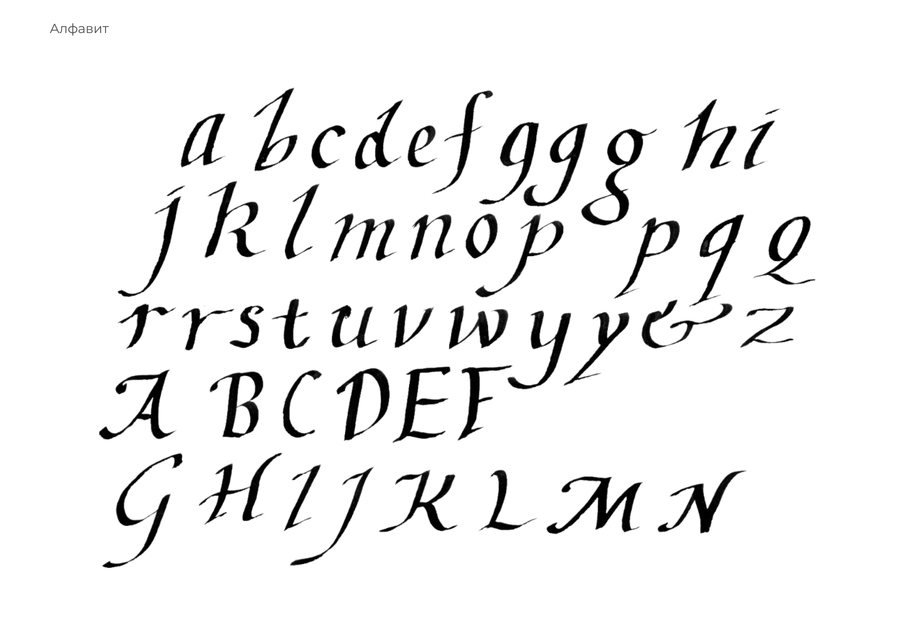 Алфавит
a b c d e f g g g h i
j k l m n o p p q Q
r r s t u v w y y & z
A B C D E F
G H I J K L M N